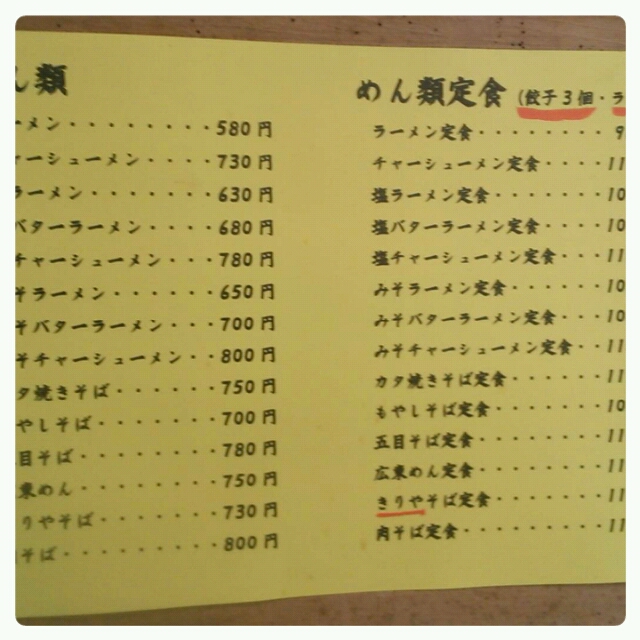 ん類
ーメン・・・・・・・・580円
ャーシューメン・・・・730円
ラーメン・・・・・・・630円
バターラーメン・・・・680円
チャーシューメン・・・780円
そラーメン・・・・・・650円
そバターラーメン・・・700円
そチャーシューメン・・800円
タ焼きそば・・・・・・750円
やしそば・・・・・・・700円
目そば・・・・・・・・780円
東めん・・・・・・・・750円
りやそば・・・・・・・730円
そば・・・・・・・・・800円
めん類定食(餃子3個・ラ
ラーメン定食・・・・・・・・9
チャーシューメン定食・・・・11
塩ラーメン定食・・・・・・・10
塩バターラーメン定食・・・・10
塩チャーシューメン定食・・・11
みそラーメン定食・・・・・・10
みそバターラーメン定食・・・10
みそチャーシューメン定食・・11
カタ焼きそば定食・・・・・・11
もやしそば定食・・・・・・・10
五目そば定食・・・・・・・・11
広東めん定食・・・・・・・・11
きりやそば定食・・・・・・・11
肉そば定食・・・・・・・・・11